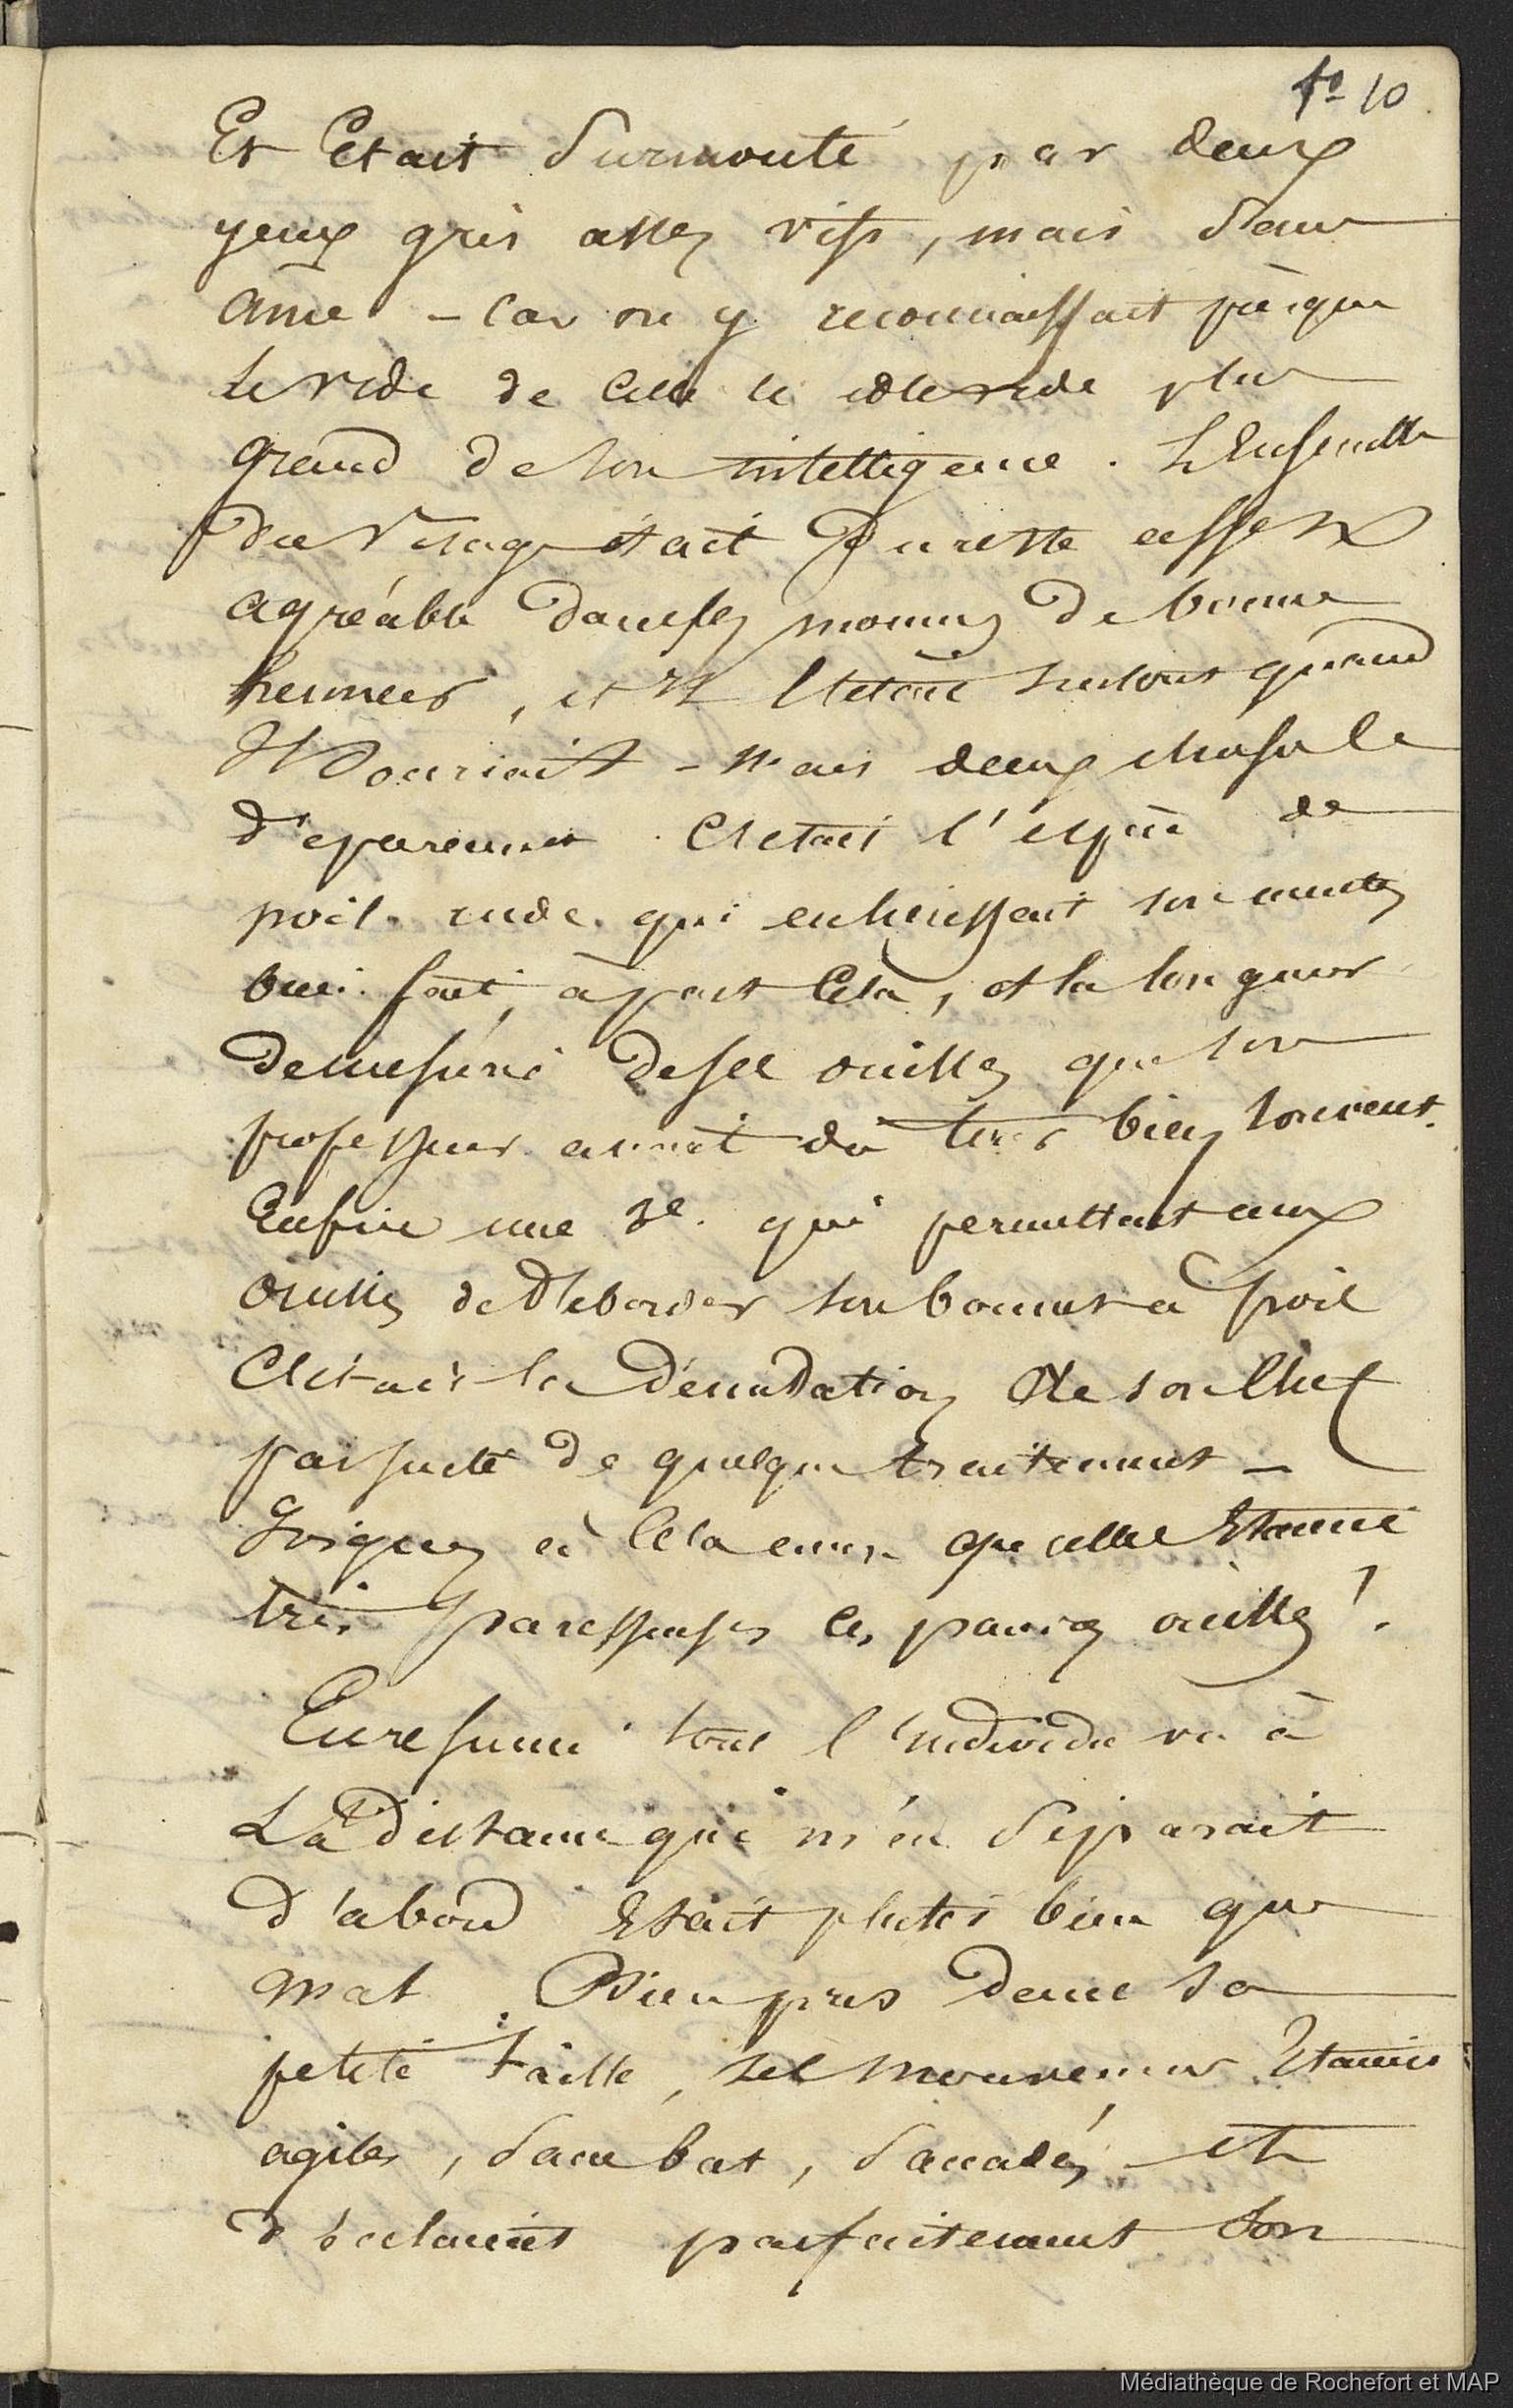 fo 10
Et Etait Surmonté par deux
yeux gris assez vifs, mais sans
âme - Car on y reconnaissait presque
le vide de celle ci et le vide plus
grand de son intelligence. L'Ensemble
du Visage était Du reste assez
agréable dans ses moments De bonne
humeur, et Il l'était surtout quand
Il Souriait - Mais deux choses le
déparaient. C'etait l'espèce de
poil rude qui enhérissait son menton
bien fait, à part Cela, et la longueur
demesurée de ses oreilles que son
professeur avait dû tirer bien souvent.
Enfin une 3e. qui permettait aux
oreilles de Déborder son bonnet à poil
C'était la Dénudation De son Chef
par suite de quelque traitement -
Joignez à Cela qu'elles Etaient
très paresseuses ces pauvres oreilles!
En resumé tout l'individu vu à
La Distance qui m'en Séparait
D'abord Etait plutôt bien que
mal. Bien pris dans sa
petite taille, ses mouvements Etaient
agiles, Saccadés et
parfaitement Son